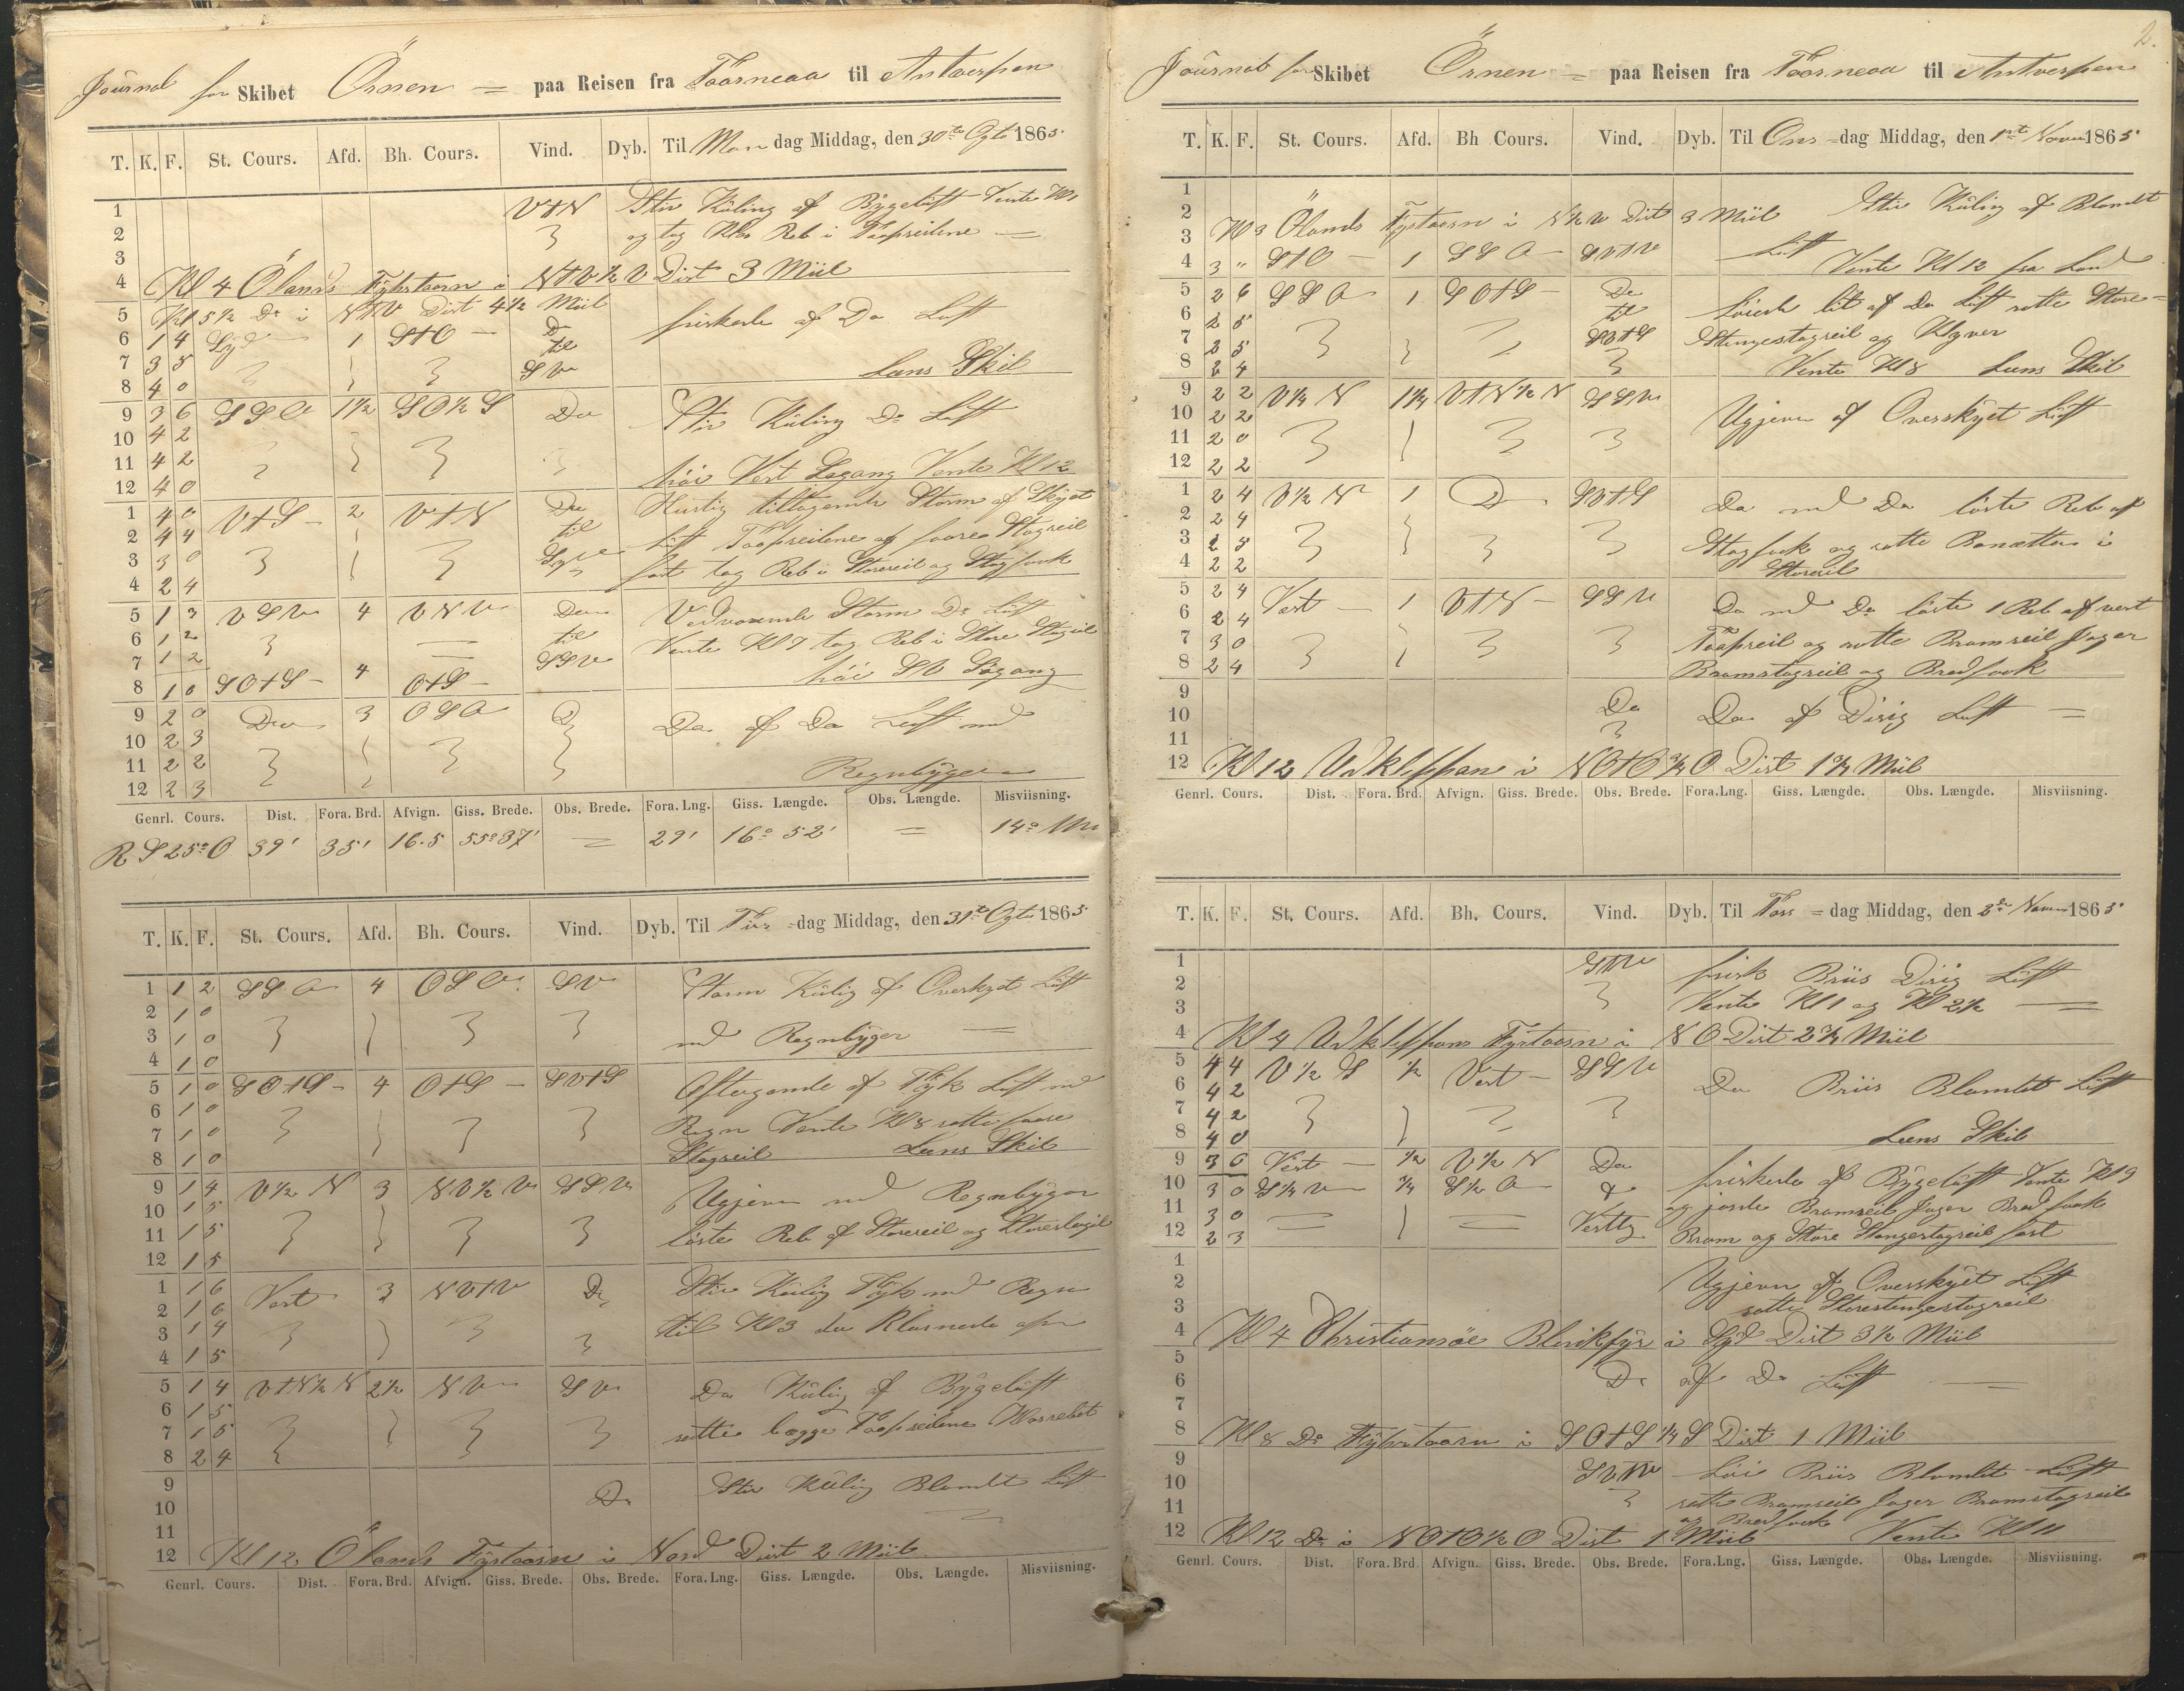 Journal for Skibet Örnen = paa Reisen fra Taarneaa til Antwerpen
T. K. F. St. Cours. Afd. Bh. Cours. Vind. Dyb. Til Man dag Middag, den 30te Ogto 1865
1 V t N Stiv Kuling af Bygeluft Vente Kl 1
2 og tog Kl 2 Reb i Topseilene
3
4 Kl 4 Ölands Fyhrtaarn i N t V ½ V Dist 3 Miil
5 Kl 5½ Do i N t V Dist 4½ Miil
6 1 4 Syd 1 S t O Do friskede af Do Luft
7 3 5 til
8 4 0 S V Lens Skib
9 3 6 S S O 1½ S O ½ S Do Stiv Kuling Do Luft
10 4 2
11 4 2
12 4 0 höi Vest Søgang Vente Kl 12
1 4 0 V t S 2 V t N Do Hurtig tiltagende Storm af Skyet
2 4 4 til Luft Topseilene og faare Stagseil
3 3 0 fast tog Reb i Storeseil og Stagfok
4 2 4
5 1 3 V S V 4 V N V Do Vedvarende Storm Do Luft
6 1 2 til Vente Kl 7 tog Reb i Store Stagseil
7 1 2 S S V
8 1 0 S O t S 4 O t S höi S V Søgang
9 2 0 Do 3 O S O Do Do af Do Luft med
10 2 3
11 2 2 Regnbyger
12 2 3
Genrl. Cours. Dist. Fora. Brd. Afvign. Giss. Brede. Obs. Brede. Fora. Lng. Giss. Længde. Obs. Længde. Misviisning.
R S 25° O 39' 35' 16.5 55° 37' = 29' 16° 52' = 14° V
T. K. F. St. Cours. Afd. Bh. Cours. Vind. Dyb. Til Tirs =dag Middag, den 31te Ogto 1865
1 1 2 S S O 4 O S O S V Storm Kuling af Overskyet Luft
2 1 0
3 1 0 med Regnbyger
4 1 0
5 1 0 S O t S 4 O t S S V t S Aftagende af Tyk Luft med
6 1 0
7 1 0 Regn Vente Kl 8 satte faare
8 1 0 Stagseil Lens Skib
9 1 4 V ½ N 3 N V ½ V S S V Ugjevn med Regnbyger
10 1 5
11 1 5 løste Reb af Storeseil og
12 1 5
1 1 6 Vest 3 N V t V Do Stiv Kuling Tyk med Regn
2 1 6
3 1 4 til Kl 3 da Klarnede op
4 1 5
5 1 4 V t N ½ N 2½ N V S V Do Kuling af Bygeluft
6 1 5
7 1 5 satte begge Topseilene
8 2 4
9 Do Stiv Kuling Blandet Luft
10
11
12 Kl 12 Ölands Fyrtaarn i Nord Dist 2 Miil
Genrl. Cours. Dist. Fora. Brd. Afvign. Giss. Brede. Obs. Brede. Fora. Lng. Giss. Længde. Obs. Længde. Misviisning.
2.
Journal for Skibet Örnen = paa Reisen fra Taarneaa til Antverpen
T. K. F. St. Cours. Afd. Bh Cours. Vind. Dyb. Til Ons =dag Middag, den 1ste Novem 1865
1 Stiv Kuling af Blandet
2
3 Kl 3 Ölands Fyrtaarn i N ½ V Dist 3 Miil Luft
4 3 " S t O 1 S S O S V t V Vente Kl 12 fra Land
5 2 6 S S O 1 S O t S Do Løiede lit af Do Luft satte Store=
6 2 5 til
7 2 5 S V t S Stengestagseil og Klyver
8 2 4 Vente Kl 8 Lens Skib
9 2 2 V ½ N 1¼ V t N ½ N S S V Ugjevn af Overskyet Luft
10 2 2
11 2 0
12 2 2
1 2 4 V ½ N 1 D S V t S Do med Do løste Reb af
2 2 4
3 2 5 Stagfok og satte Bonætten i
4 2 2 Storeseil
5 2 4 Vest 1 V t N S S V Do med Do løste 1 Reb af vert
6 2 4
7 3 0 Topseil og satte Bramseil Jager
8 2 4 Bramstagseil og Bredfok
9 Do Do af Disig Luft
10
11
12 Kl 12 Utklippan i N O t O ¾ O Dist 1¾ Miil
Genrl. Cours. Dist. Fora. Brd. Afvign. Giss. Brede. Obs. Brede. Fora. Lng. Giss. Længde. Obs. Længde. Misviisning.
T. K. F. St. Cours. Afd. Bh. Cours. Vind. Dyb. Til Tors =dag Middag, den 2den Novem 1865
1 S V t V frisk Briis Disig Luft
2
3 Vente Kl 1 og Kl 2½
4 Kl 4 Utklippans Fyrtaarn i N O Dist 2¾ Miil
5 4 4 V ½ S ½ Vest S S V Do Briis Blandet Luft
6 4 2
7 4 2
8 4 0 Lens Skib
9 3 0 Vest ½ V ½ N Do friskede af Bygeluft Vente Kl 9
10 3 0 S ¼ V ¾ S ½ O &
11 3 0 Vestlig og gjorde Bramseil Jager Bredfok
12 2 3 Bram og Store Stengestagseil fast
1
2 Ugjevn af Overskyet Luft
3 satte Storestengestagseil
4 Kl 4 Christiansöe Blinkfyr i Syd Dist 3½ Miil
5
6 Do af Do Luft
7
8 Kl 8 Do Fyhrtaarn i S O t S ¼ S Dist 1 Miil
9 S V t V Løi Briis Blandet Luft
10
11 satte Bramseil Jager Bramstagseil
og Bredfok
12 Kl 12 Do i N O t O ½ O Dist 1 Miil Vente Kl 11
Genrl. Cours. Dist. Fora. Brd. Afvign. Giss. Brede. Obs. Brede. Fora. Lng. Giss. Længde. Obs. Længde. Misviisning.